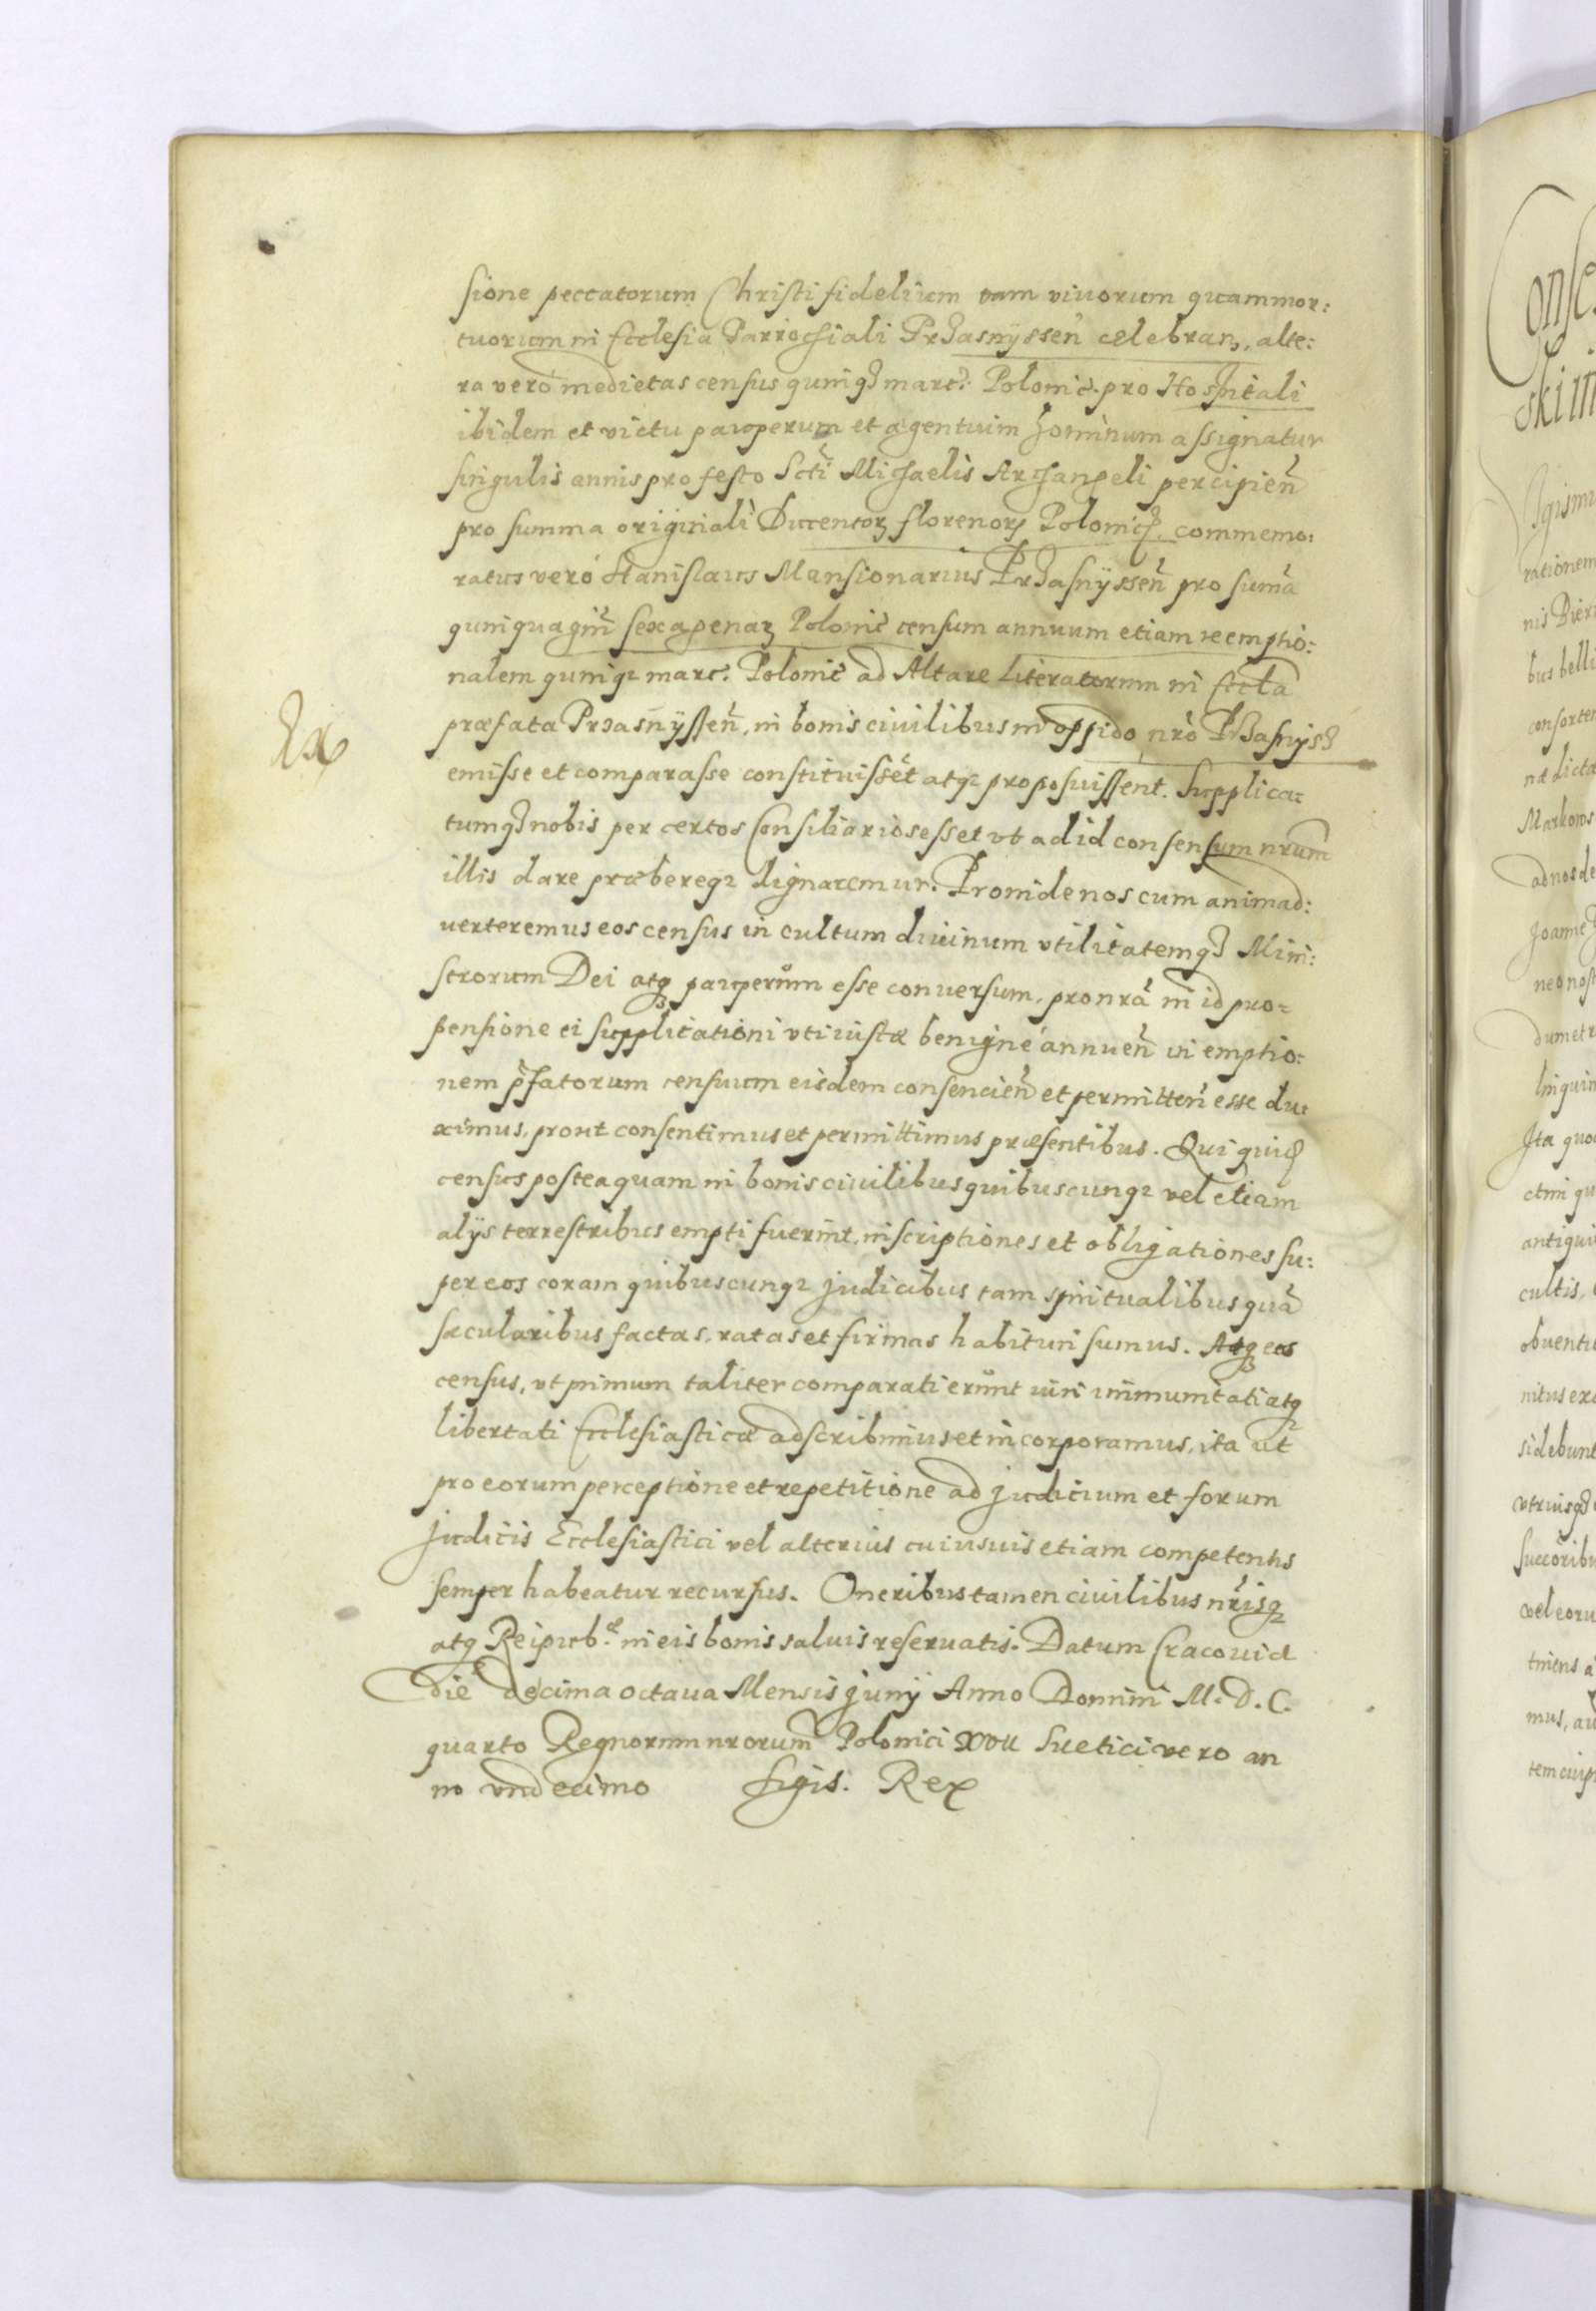 sione peccatorum Christi fidelium tam viuorum quam mor:
tuorum in Ecclesia Parrochiali Przasnyssen̄ celebran̄, alte:
ra verò medietas census quinq3 marc: Polonic. pro Hospitali
ibidem et victu pauperum et ægentium hominum assignatur
singulis annis pro festo Scti Michaelis Archangeli percipien̄
pro summa originali Ducentor̄ florenor̄ Polonic̄. commemo:
ratus verò Stanislaus Mansionarius Przasnyssen̄ pro sum̄a
quinquagin̄ sexagenar̄ Polonic̄ censum annuum etiam reemptio:
nalem quinq3 marc: Polonic̄ ad Altare Literatorum in Eccla
præfata Przasnyssen̄, in bonis ciuilibus in oppido nrō Przasnys3
emisse et comparasse constituissēt atq3 proposuissent. Supplica:
tumq3 nobis per certos Consiliarios esset vt ad id consensum nrūm
illis dare præbereq3 dignaremur. Proinde nos cum animad:
uerteremus eos census in cultum diuinum vtilitatemq3 Mini:
strorum Dei atq3 pauperum esse conuersum, pro nrā in id pro=
pensione ei supplicationi vti iustæ benignè annuen̄ in emptio:
nem p̄fatorum censuum eisdem consencien̄ et permitten̄ esse du:
ximus, prout consentimus et permittimus præsentibus. Qui quid̄
census posteaquam in bonis ciuilibus quibuscunq3 vel etiam
alijs terrestribus empti fuerint, inscriptiones et obligationes su:
per eos coram quibuscunq3 judicibus tam spiritualibus quā
sæcularibus factas, ratas et firmas habituri sumus. Atq3 eos
census, vt primum taliter comparati erunt iuri immunitati atq3
libertati Ecclesiasticæ adscribimus et incorporamus, ita ut
pro eorum perceptione et repetitione ad judicium et forum
judicis Ecclesiastici vel alterius cuiusuis etiam competentis
semper habeatur recursus. Oneribus tamen ciuilibus nrīsq3
atq3 Reipub.æ in eis bonis saluis reseruatis. Datum Cracouiæ
die decima octaua Mensis Junij Anno Domini M. D. C.
quarto Regnorum nrorum̄ Polonici XVII Suetici vero an
no vndecimo Sigis. Rex
Ex